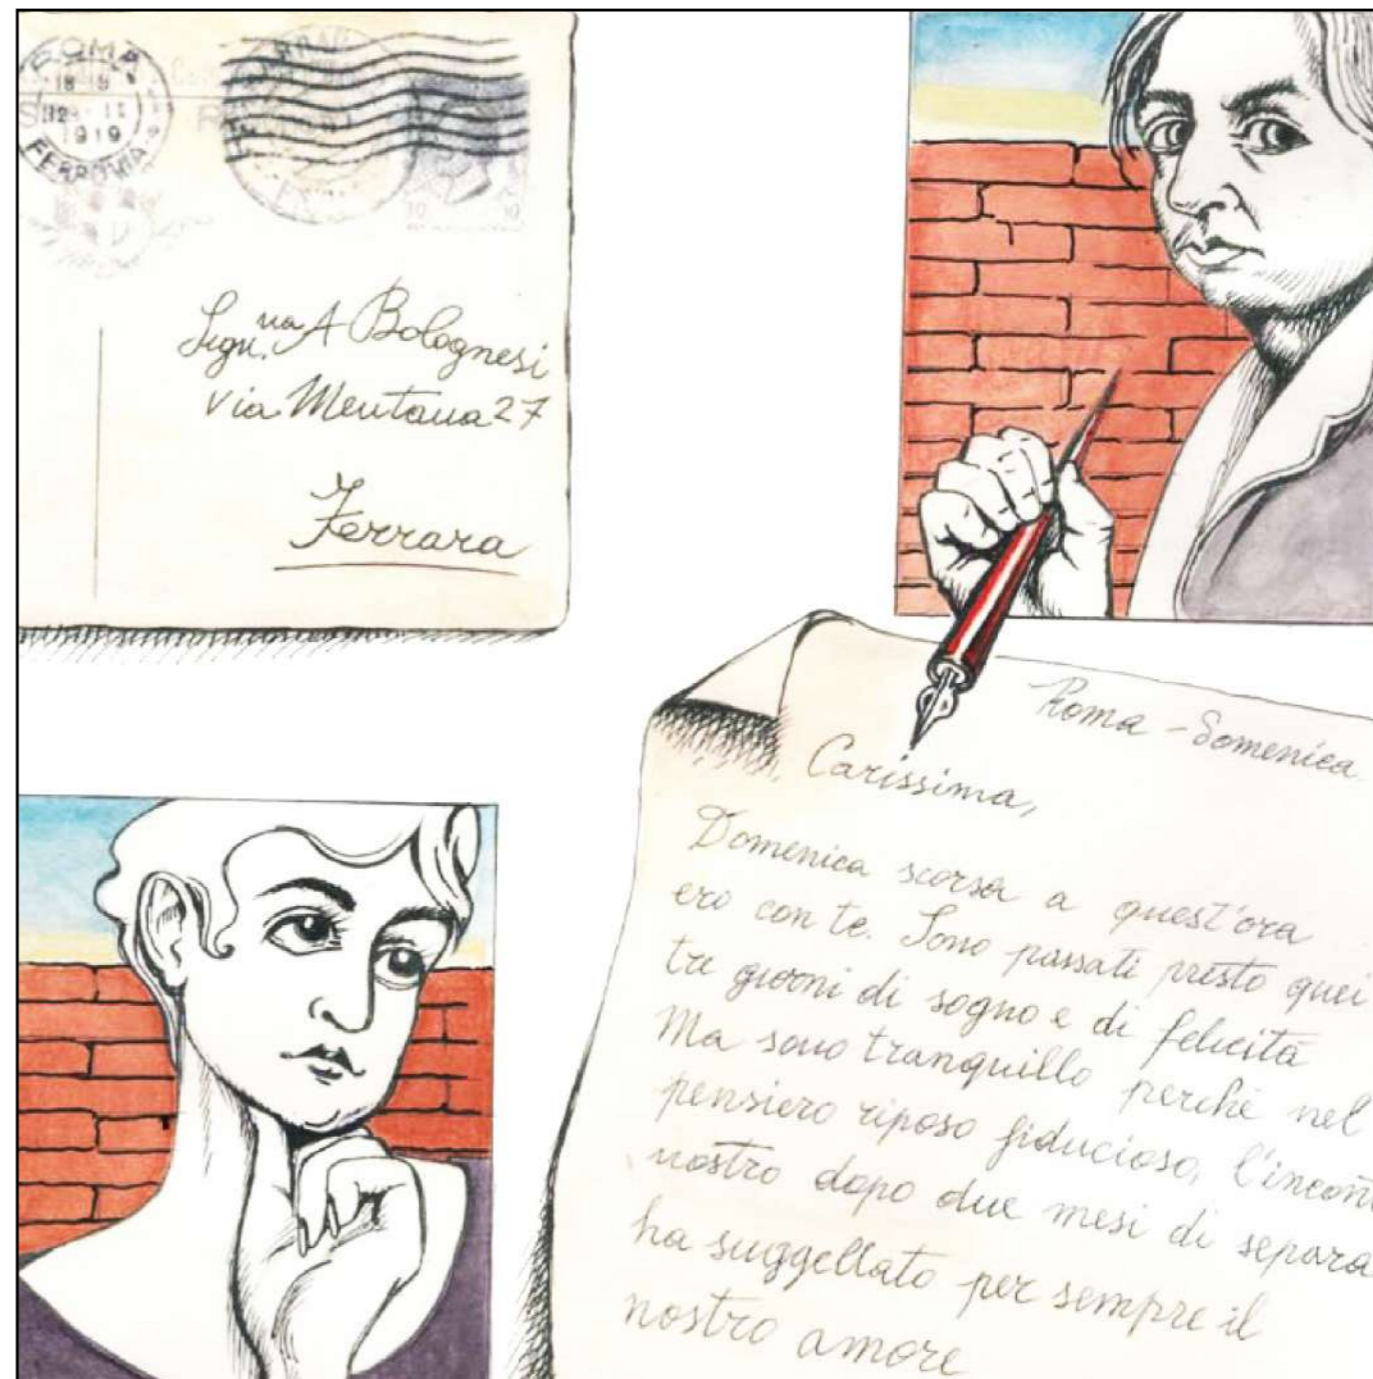 ROMA
18 19
12 II
1919
FERROVIA
10 10
Sign.na A Bolognesi
via Mentana 27
Ferrara
Roma - Domenica
Carissima,
Domenica scorsa a quest'ora
ero con te. Sono passati presto quei
tre giorni di sogno e di felicità
Ma sono tranquillo perché nel
pensiero riposo fiducioso, l'incont
nostro dopo due mesi di separa
ha suggellato per sempre il
nostro amore